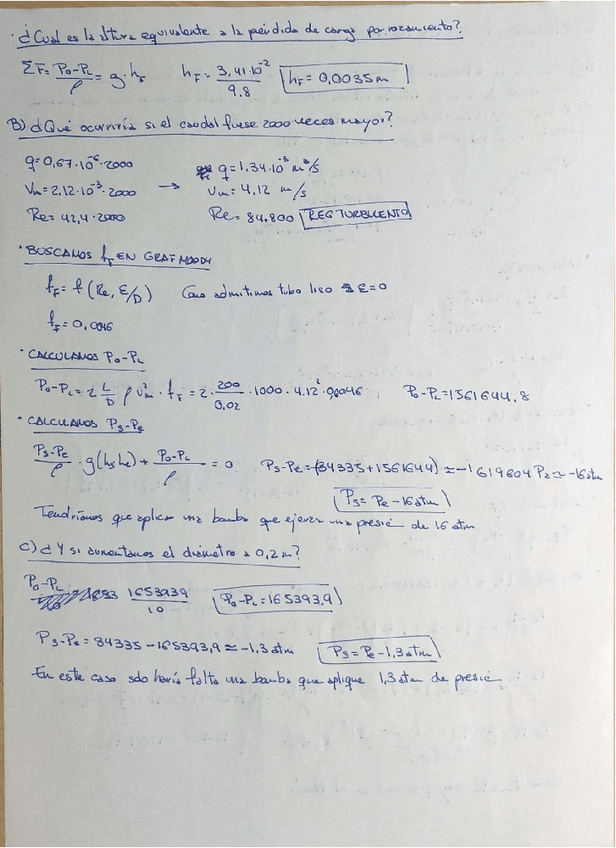 · ¿Cual es la altura equivalente a la pérdida de carga por rozamiento?
ΣF = P₀-P_L/ρ = g·h_F   h_F = 3,41·10⁻²/9,8   h_F = 0,0035m
B) ¿Qué ocurriría si el caudal fuese 2000 veces mayor?
q=0,67·10⁻⁶·2000 → q=1.34·10⁻³ m³/s
v_m=2.12·10⁻³·2000   v_m=4.12 m/s
Re=42,4·2000   Re=84.800 REG TURBULENTO
· BUSCAMOS f_F EN GRAF MOODY
f_F = f(Re, E/D)   Como admitimos tubo liso E=0
f_F=0,0046
· CALCULAMOS P₀-P_L
P₀-P_L=2 L/D ρ v_m²·f_F = 2·200/0,02·1000·4.12²·0,0046   P₀-P_L=1561644,8
· CALCULAMOS P_S-P_E
P_S-P_E/ρ · g(h_S h_E)+ P₀-P_L/ρ = 0   P_S-P_E=-(34335+1561644)≃-1619604 Pa≃-16atm
P_S=P_E-16atm
Tendríamos que aplicar una bomba que ejerza una presión de 16 atm
C) ¿Y si aumentamos el diámetro a 0,2m?
P₀-P_L   1653939/10   P₀-P_L=165393,9
P_S-P_E=34335-165393,9≃-1,3atm   P_S=P_E-1,3atm
En este caso solo haría falta una bomba que aplique 1,3 atm de presió